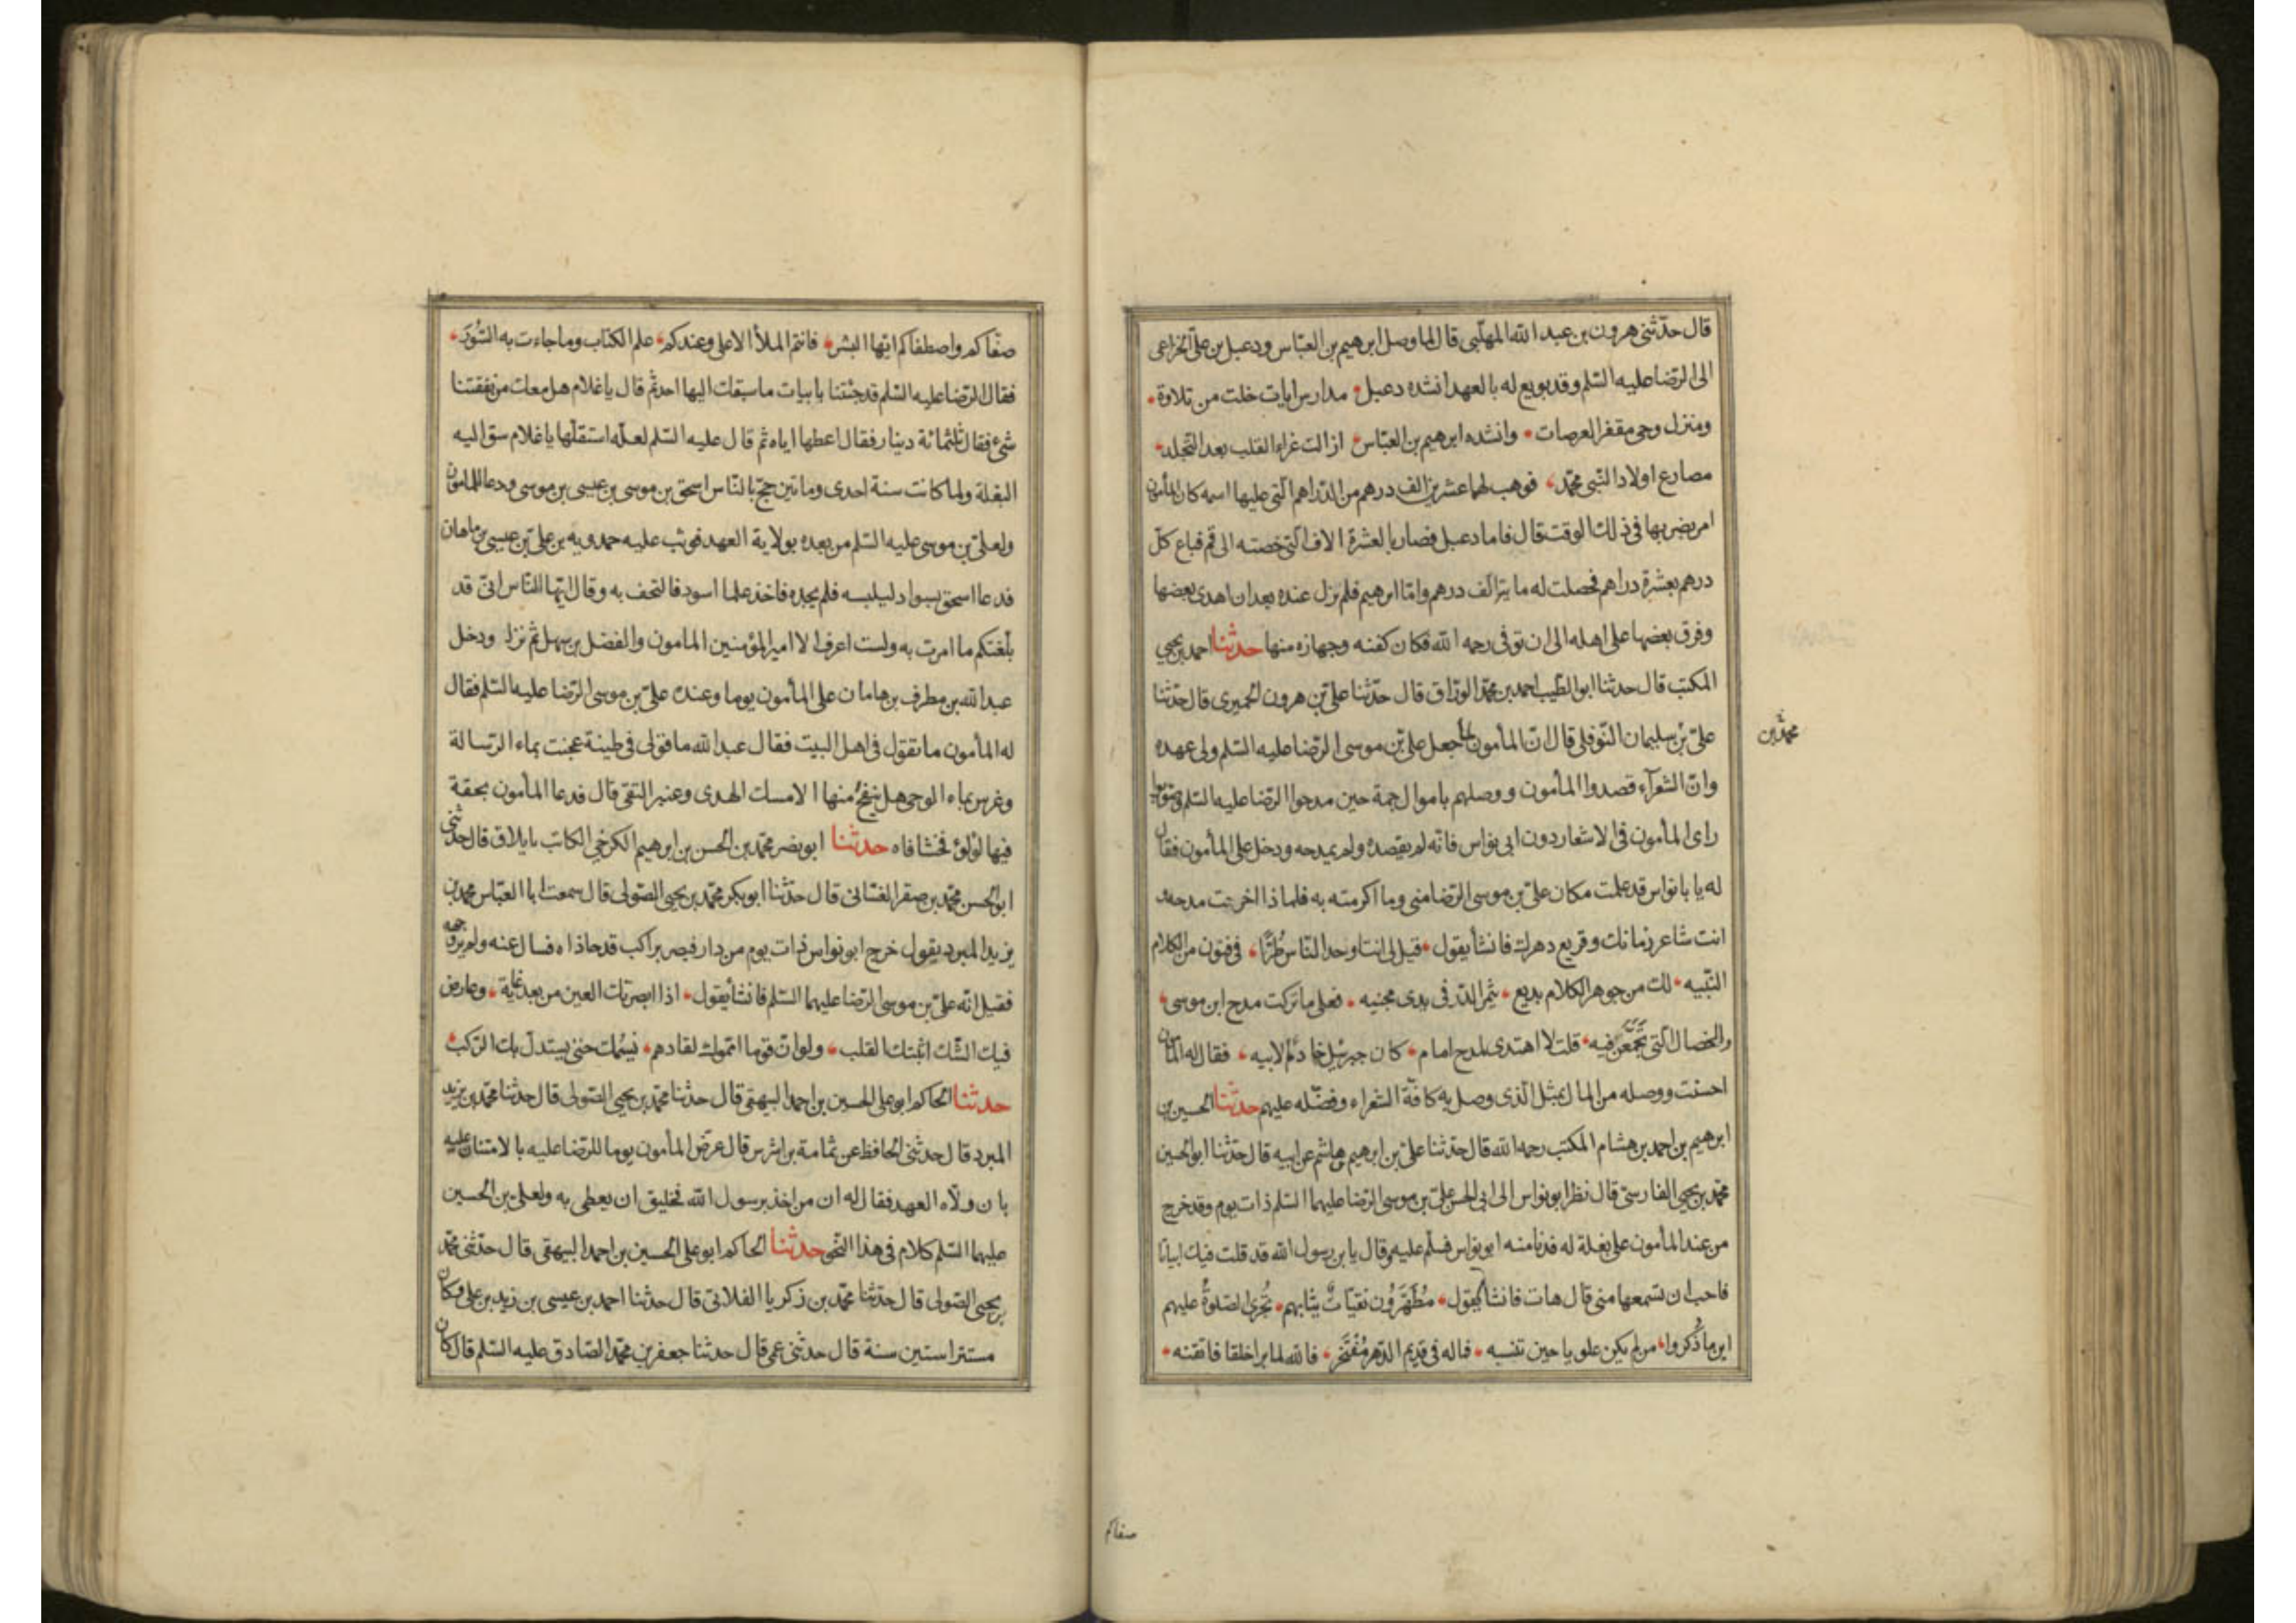 قال حدّثنى هرون بن عبد الله المهلّبى قال لما وصل ابرهيم بن العبّاس ودعبل بن علىّ الخزاعى
الى الرّضا عليه السّلم وقد بويع له بالعهد انشده دعبل مدارس ايات خلت من تلاوة
ومنزل وحى مقفر العرصات وانشده ابرهيم بن العبّاس ازالت غراء القلب بعد التّجلد
مصارع اولاد النّبى محمّد فوهب لهما عشرين الف درهم من الدّراهم الّتى عليها اسمه كان المأمون
امر بضربها فى ذلك الوقت قال فاما دعبل فصار بالعشرة الاف الّتى خصته الى قم فباع كلّ
درهم بعشرة دراهم فحصلت له مائة الف درهم وامّا ابرهيم فلم يزل عنده بعد ان اهدى بعضها
وفرق بعضها على اهله الى ان توفى رحمه الله فكان كفنه وجهازه منها حدّثنا احمد بن يحيى
المكتب قال حدثنا ابو الطّيب احمد بن محمّد الورّاق قال حدّثنا علىّ بن هرون الحميرى قال حدّثنا
محمّد بن
علىّ بن سليمان النّوفلى قال انّ المأمون لما جعل علىّ بن موسى الرّضا عليه السّلم ولى عهده
وانّ الشعرآء قصدوا المأمون ووصلهم باموال جمة حين مدحوا الرّضا عليه السّلم وصوّبوا
راى المأمون فى الاشعار دون ابى نواس فانّه لم يقصده ولم يمدحه ودخل على المأمون فقال
له يا با نواس قد علمت مكان علىّ بن موسى الرّضا منى وما اكرمته به فلماذا اخرت مدحه
انت شاعر زمانك وقريع دهرك فانشأ يقول قيل لى انت اوحد النّاس طُرًّا فى فنون من الكلام
النّبيه لك من جوهر الكلام بديع يثمر الدّر فى يدى مجنيه فعلى ما تركت مدح ابن موسى
والخصال الّتى تَجَمَّعْنَ فيه قلت لا اهتدى لمدح امام كان جبرئيل خادمًا لابيه فقال له المأمون
احسنت ووصله من المال بمثل الّذى وصل به كافّة الشعراء وفضّله عليهم حدّثنا الحسين بن
ابرهيم بن احمد بن هشام المكتب رحمه الله قال حدّثنا علىّ بن ابرهيم بن هاشم عن ابيه قال حدّثنا ابو الحسين
محمّد بن يحيى الفارسىّ قال نظر ابو نواس الى ابى الحسن علىّ بن موسى الرّضا عليهما السّلم ذات يوم وقد خرج
من عند المأمون على بغلة له فدنا منه ابو نواس فسلّم عليه وقال يا بن رسول الله قد قلت فيك ابياتا
فاحب ان تسمعها منى قال هات فانشأ يقول مُطَهَّرُون نقيّاتٌ ثيابهم تُجرى الصّلوةُ عليهم
اين ما ذُكروا من لم يكن علويا حين تنسبه فماله فى قديم الدّهر مُفْتَخَر فالله لما برا خلقا فاتقنه
صفاكم
صفّاكم واصطفاكم ايّها البشر فانتم الملأ الاعلى وعندكم علم الكتاب وما جاءت به السُّوَر
فقال الرّضا عليه السّلم قد جئتنا بابيات ما سبقك اليها احد ثمّ قال يا غلام هل معك من نفقتنا
شىء فقال ثلثمائة دينار فقال اعطها اياه ثم قال عليه السّلم لعلّه استقلّها يا غلام سق اليه
البغلة ولما كانت سنة احدى ومائتين حجّ بالنّاس اسحق بن موسى بن عيسى بن موسى ودعا للمامون
ولعلىّ بن موسى عليه السّلم من بعده بولاية العهد فوثب عليه حمدويه بن علىّ بن عيسى بن ماهان
فدعا اسحق بسواد ليلبسه فلم يجده فاخذ علما اسود فالتحف به وقال ايّها النّاس انّى قد
بلّغتكم ما امرت به ولست اعرف الا امير المؤمنين المامون والفضل بن سهل ثمّ نزل ودخل
عبد الله بن مطرف بن هامان على المأمون يوما وعنده علىّ بن موسى الرّضا عليه السّلم فقال
له المأمون ما تقول فى اهل البيت فقال عبد الله ما قولى فى طينة عجنت بماء الرّسالة
وغرس بماء الوحى هل ينفح منها الا مسك الهدى وعنبر التقى قال فدعا المأمون بحقة
فيها لؤلؤ فحشا فاه حدّثنا ابو نصر محمّد بن الحسن بن ابرهيم الكرخى الكاتب بايلاق قال حدّثنى
ابو الحسن محمّد بن صقر الغسّانى قال حدّثنا ابو بكر محمّد بن يحيى الصّولى قال سمعت ابا العبّاس محمد بن
يزيد المبرد يقول خرج ابو نواس ذات يوم من دار فبصر براكب قد حاذاه فسال عنه ولم ير وجهه
فقيل انّه علىّ بن موسى الرّضا عليهما السّلم فانشأ يقول اذا ابصرتك العين من بعد غاية وعارض
فيك الشّك اثبتك القلب ولو انّ قوما امّموك لقادهم نسيمك حتى يستدلّ بك الرّكب
حدثنا الحاكم ابو على الحسين بن احمد البيهقى قال حدثنا محمّد بن يحيى الصّولى قال حدثنا محمّد بن يزيد
المبرد قال حدثنى الحافظ عن ثمامة بن اشرس قال عرض المأمون يوما للرّضا عليه بالامتنان عليه
بان ولّاه العهد فقال له ان من اخذ برسول الله لخليق ان يعطى به ولعلىّ بن الحسين
عليهما السّلم كلام فى هذا النّحو حدّثنا الحاكم ابو على الحسين بن احمد البيهقى قال حدّثنى محمّد
بن يحيى الصّولى قال حدّثنا محمّد بن زكريا الغلابى قال حدثنا احمد بن عيسى بن زيد بن على وكان
مستترا ستين سنة قال حدثنى عمى قال حدثنا جعفر بن محمّد الصّادق عليه السّلم قال كان